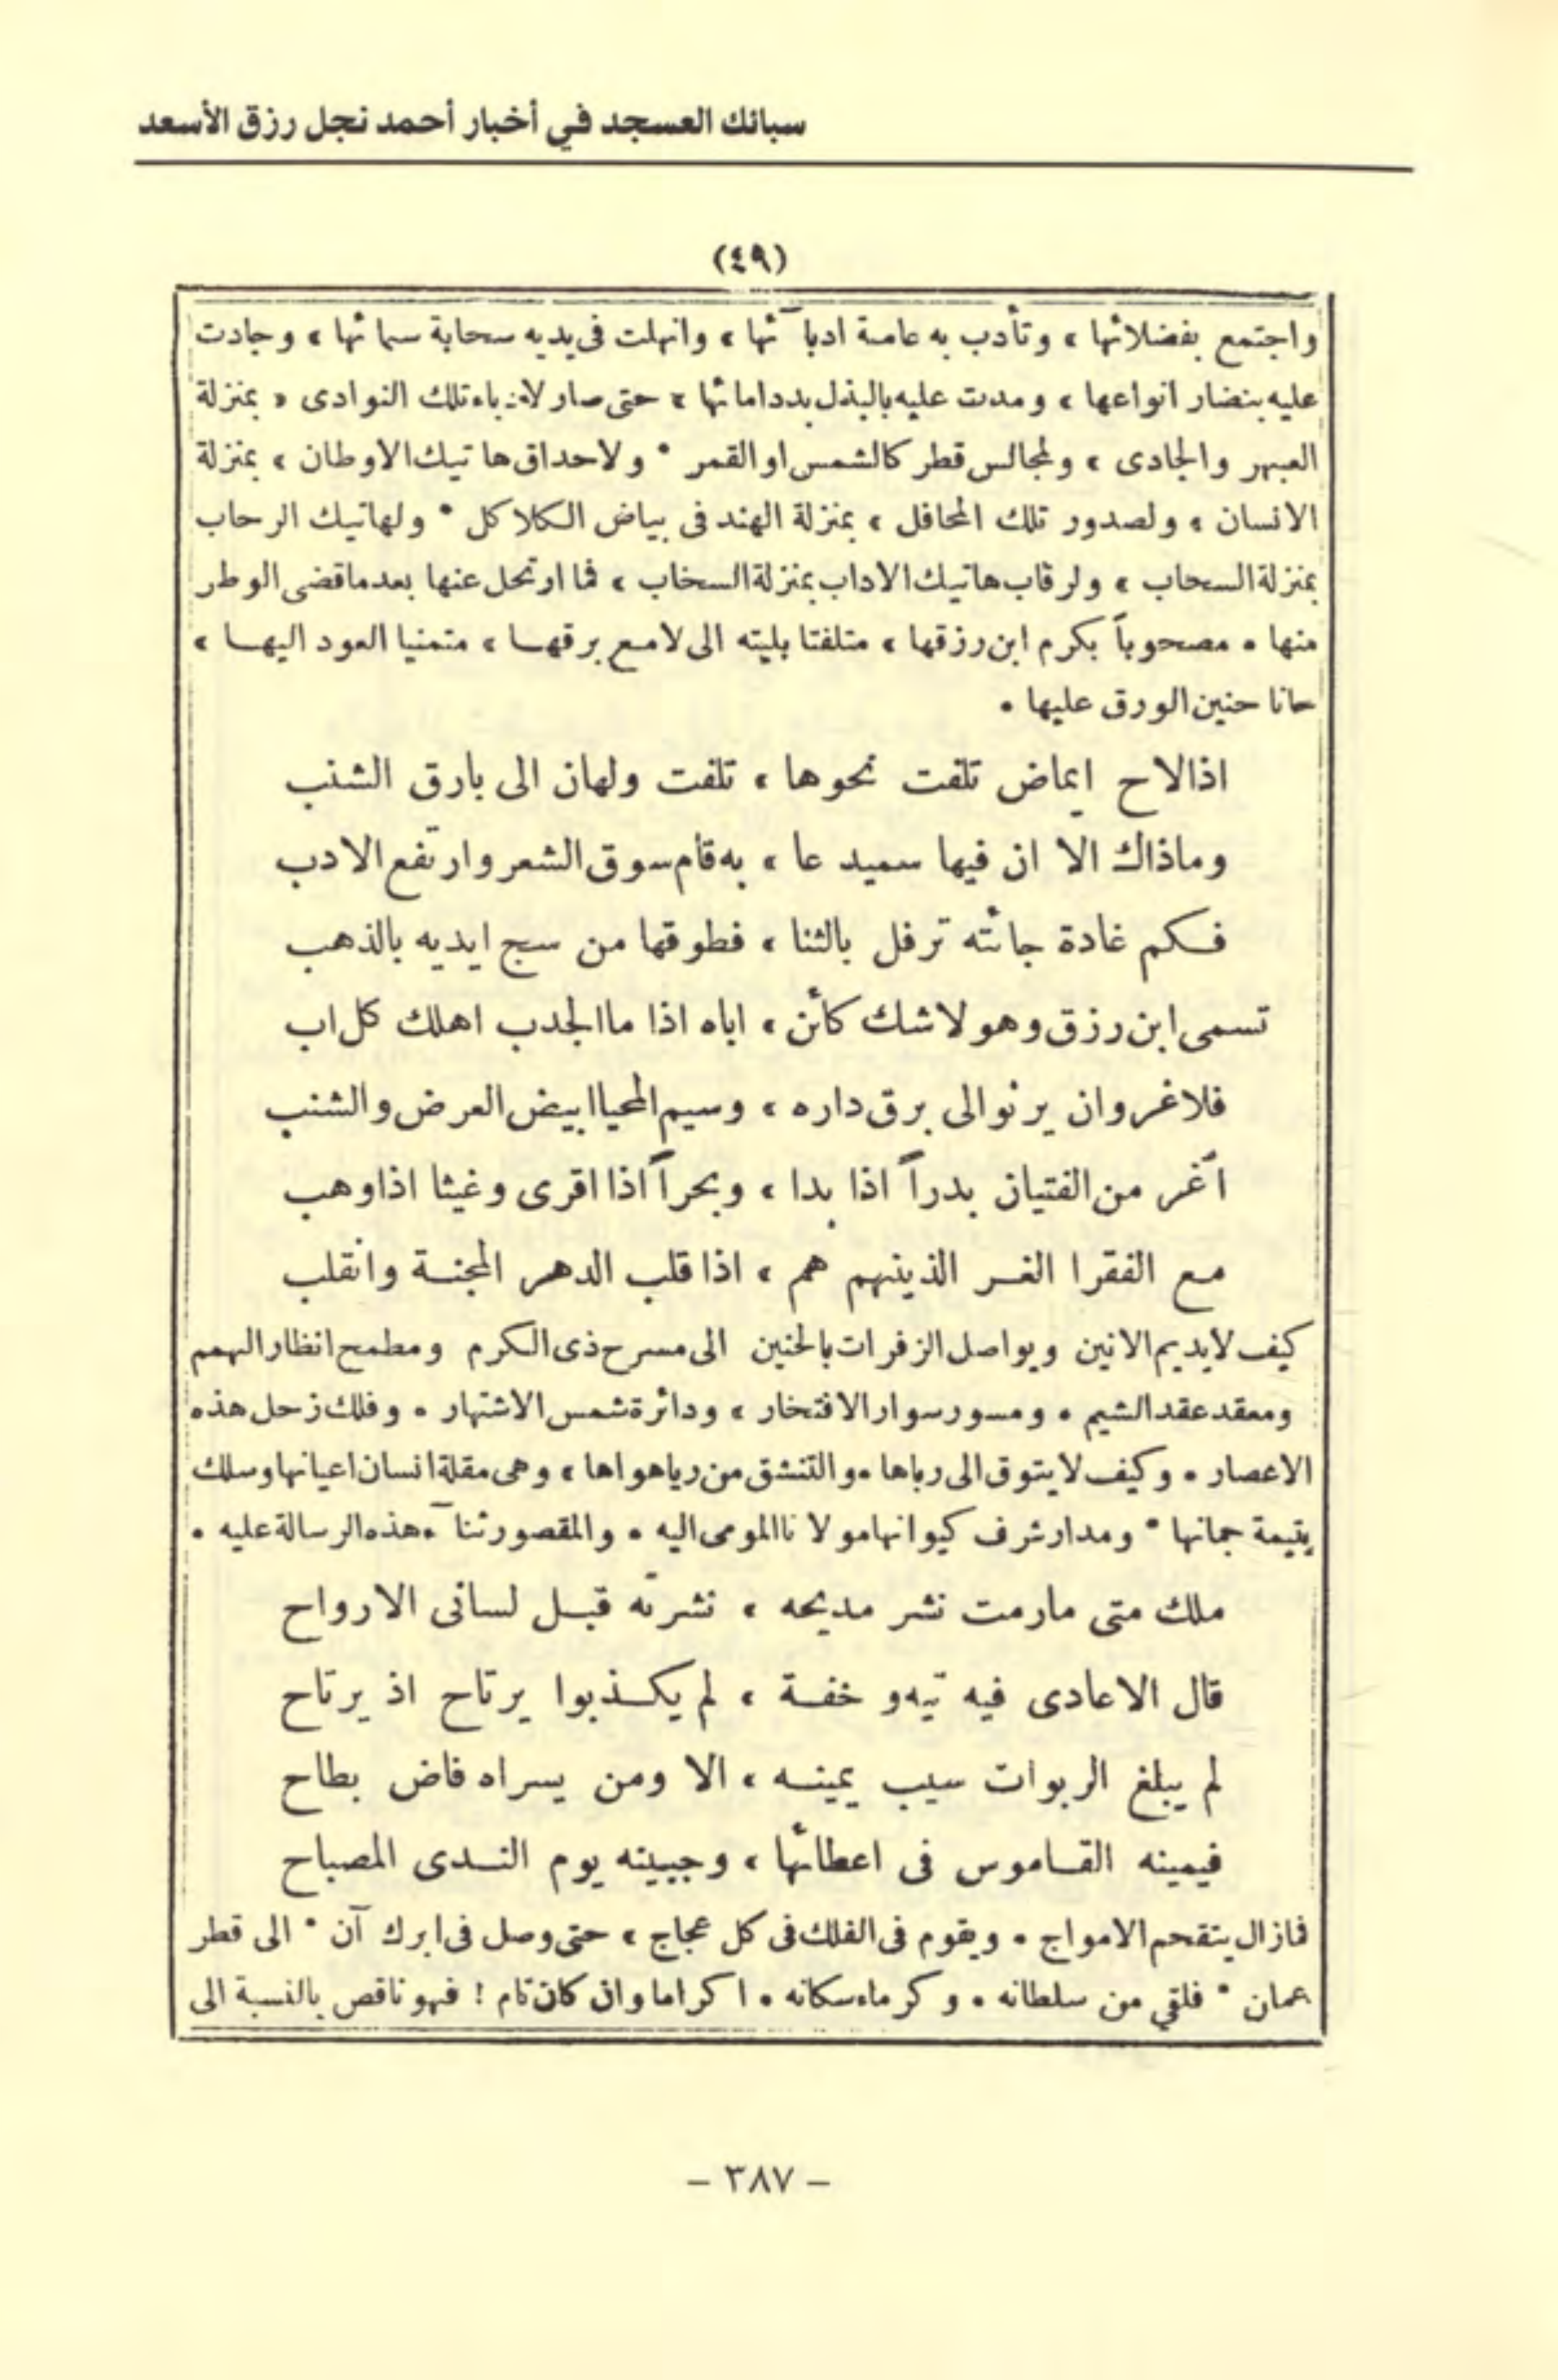 سبائك العسجد في أخبار أحمد نجل رزق الأسعد
(٤٩)
واجتمع بفضلائها ، وتأدب به عامة ادبائها ، وانهلت فى يديه سحابة سمائها ، وجادت
عليه بنضار انواعها ، ومدت عليه بالبذل يد دامائها ، حتى صار لادباء تلك النوادى ، بمنزلة
العبهر والجادى ، ولمجالس قطر كالشمس او القمر * ولاحداق هاتيك الاوطان ، بمنزلة
الانسان ، ولصدور تلك المحافل ، بمنزلة الهند فى بياض الكلاكل * ولهاتيك الرحاب
بمنزلة السحاب ، ولرقاب هاتيك الاداب بمنزلة السخاب ، فما ارتحل عنها بعد ما قضى الوطر
منها * مصحوباً بكرم ابن رزقها ، متلفتا بليته الى لامع برقها ، متمنيا العود اليها ،
حانا حنين الورق عليها *
اذا لاح ايماض تلفت نحوها ، تلفت ولهان الى بارق الشنب
وماذاك الا ان فيها سميدعا ، به قام سوق الشعر وارتفع الادب
فكم غادة جائته ترفل بالثنا ، فطوقها من سبج ايديه بالذهب
تسمى ابن رزق وهو لا شك كائن ، اباه اذا ما الجدب اهلك كل اب
فلا غرو ان يرنو الى برق داره ، وسيم المحيا ابيض العرض والشنب
أغر من الفتيان بدراً اذا بدا ، وبحراً اذا اقرى وغيثا اذا وهب
مع الفقرا الغر الذينهم هم ، اذا قلب الدهر المجنة وانقلب
كيف لا يديم الانين ويواصل الزفرات بالحنين الى مسرح ذى الكرم ومطمح انظار الهمم
ومعقد عقد الشيم * ومسور سوار الافتخار ، ودائرة شمس الاشتهار * وفلك زحل هذه
الاعصار * وكيف لا يتوق الى رباها * والتنشق من رياهواها ، وهى مقلة انسان اعيانها وسلك
يتيمة جمانها * ومدار شرف كيوانها مولانا المومى اليه * والمقصور ثناء هذه الرسالة عليه *
ملك متى مارمت نشر مديحه ، نشرته قبل لسانى الارواح
قال الاعادى فيه تيه و خفة ، لم يكذبوا يرتاح اذ يرتاح
لم يبلغ الربوات سيب يمينه ، الا ومن يسراه فاض بطاح
فيمينه القاموس فى اعطائها ، وجبينه يوم الندى المصباح
فمازال يتقحم الامواج * ويقوم فى الفلك فى كل عجاج ، حتى وصل فى ابرك آن * الى قطر
عمان * فلقي من سلطانه * وكرماء سكانه * اكراما وان كان تام ! فهو ناقص بالنسبة الى
- ٣٨٧ -